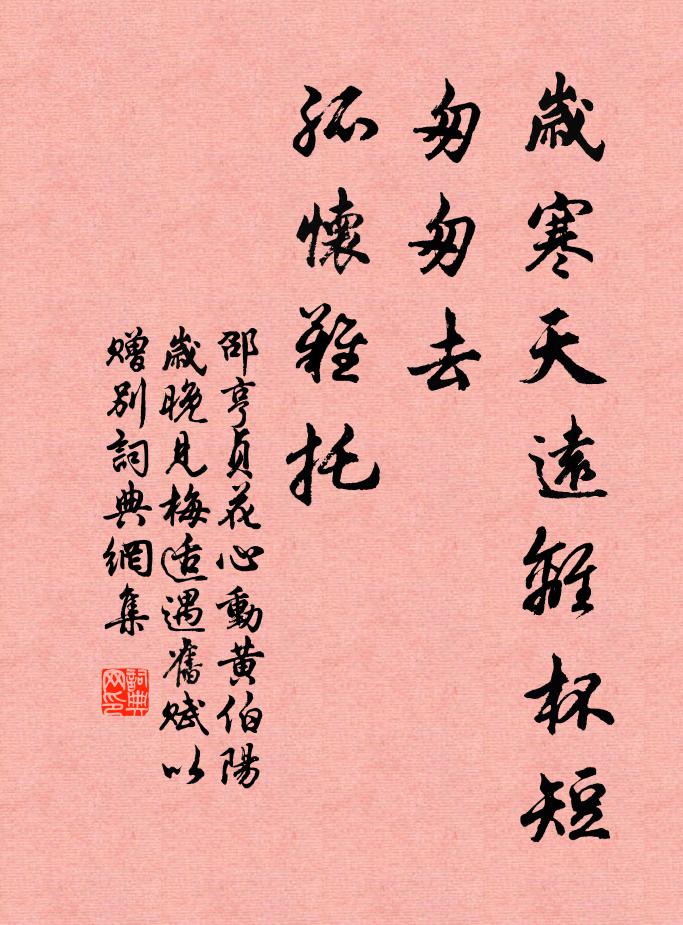 歲寒天遠離杯短
匆匆去
孤懷難托
邵亨貞花心動黃伯陽
歲晚見梅適遇舊賦以
贈別詞典網集
詞典
网印